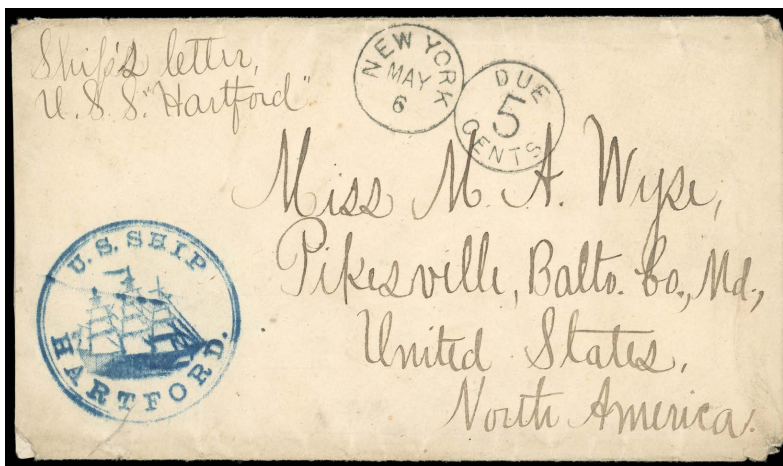 Ship's letter,
U.S.S. "Hartford"
NEW YORK
MAY
6
DUE
5
CENTS
Miss M. A. Wyse,
Pikesville, Balto. Co., Md.,
United States,
North America.
U.S. SHIP
HARTFORD.